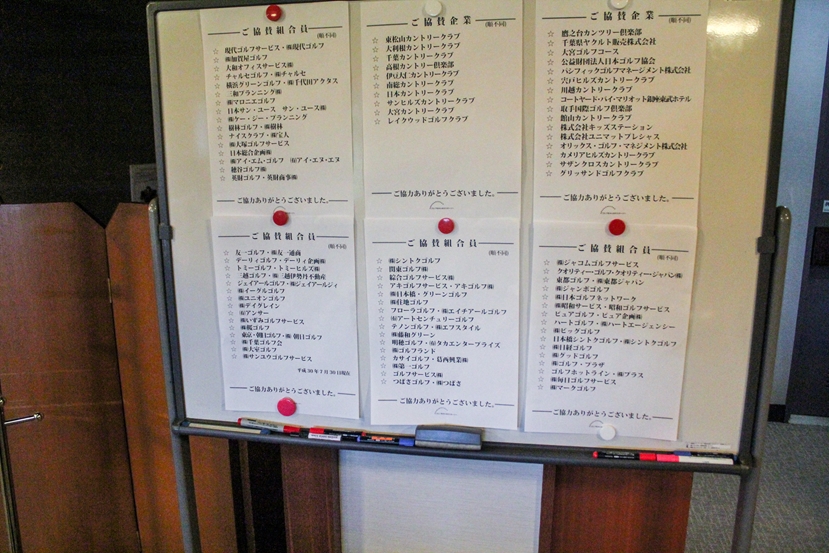 ご協賛組合員
(順不同)
☆ 現代ゴルフサービス・㈱現代ゴルフ
☆ ㈱加賀屋ゴルフ
☆ 大和オフィスサービス㈱
☆ チャルセゴルフ・㈱チャルセ
☆ 横浜グリーンゴルフ・㈱千代田アクタス
☆ 三和プランニング㈱
☆ ㈱マロニエゴルフ
☆ 日本サン・ユース サン・ユース㈱
☆ ㈱ケー・ジー・プランニング
☆ 樹林ゴルフ・㈱樹林
☆ ナイスクラブ・㈱宝人
☆ ㈱大塚ゴルフサービス
☆ 日本総合企画㈱
☆ ㈱アイ・エム・ゴルフ ㈲アイ・エヌ・エヌ
☆ 穂谷ゴルフ㈱
☆ 英財ゴルフ・英財商事㈱
ご協力ありがとうございました。
ご協賛企業
(順不同)
☆ 東松山カントリークラブ
☆ 大利根カントリークラブ
☆ 千葉カントリークラブ
☆ 高根カントリー倶楽部
☆ 伊豆大仁カントリークラブ
☆ 南総カントリークラブ
☆ 日本カントリークラブ
☆ サンヒルズカントリークラブ
☆ 大宮カントリークラブ
☆ レイクウッドゴルフクラブ
ご協力ありがとうございました。
ご協賛企業
(順不同)
☆ 鷹之台カンツリー倶楽部
☆ 千葉県ヤクルト販売株式会社
☆ 大宮ゴルフコース
☆ 公益財団法人日本ゴルフ協会
☆ パシフィックゴルフマネージメント株式会社
☆ 宍戸ヒルズカントリークラブ
☆ 川越カントリークラブ
☆ コートヤード・バイ・マリオット銀座東武ホテル
☆ 取手国際ゴルフ倶楽部
☆ 館山カントリークラブ
☆ 株式会社キッズステーション
☆ 株式会社ユニマットプレシャス
☆ オリックス・ゴルフ・マネジメント株式会社
☆ カメリアヒルズカントリークラブ
☆ サザンクロスカントリークラブ
☆ グリッサンドゴルフクラブ
ご協力ありがとうございました。
ご協賛組合員
(順不同)
☆ 友一ゴルフ・㈱友一通商
☆ デーリィゴルフ・デーリィ企画㈱
☆ トミーゴルフ・トミーヒルズ㈱
☆ 三越ゴルフ・㈱三越伊勢丹不動産
☆ ジェイアールゴルフ・㈱ジェイアールジィ
☆ ㈱イーグルゴルフ
☆ ㈱ユニオンゴルフ
☆ ㈱デイグレイン
☆ ㈲アンサー
☆ ㈱いずみゴルフサービス
☆ ㈱桜ゴルフ
☆ 東京・朝日ゴルフ・㈱朝日ゴルフ
☆ ㈱千葉ゴルフ会
☆ ㈱大室ゴルフ
☆ ㈱サンユウゴルフサービス
平成30年7月30日現在
ご協力ありがとうございました。
ご協賛組合員
(順不同)
☆ ㈱シントクゴルフ
☆ 関東ゴルフ㈱
☆ 綜合ゴルフサービス㈱
☆ アキゴルフサービス・アキゴルフ㈱
☆ ㈱日本橋・グリーンゴルフ
☆ ㈱住地ゴルフ
☆ フローラゴルフ・㈱エイチアールゴルフ
☆ ㈲アートセンチュリーゴルフ
☆ テノンゴルフ・㈱エフスタイル
☆ ㈱藤和グリーン
☆ 明穂ゴルフ・㈲タカエンタープライズ
☆ ㈱ゴルフランド
☆ カサイゴルフ・葛西興業㈱
☆ ㈱第一ゴルフ
☆ ゴルフサービス㈱
☆ つばさゴルフ・㈱つばさ
ご協力ありがとうございました。
ご協賛組合員
(順不同)
☆ ㈱ジャコムゴルフサービス
☆ クオリティーゴルフ・クオリティージャパン㈱
☆ 東都ゴルフ・㈱東都ジャパン
☆ ㈱ジャンボゴルフ
☆ ㈱日本ゴルフネットワーク
☆ ㈱昭和サービス・昭和ゴルフサービス
☆ ピュアゴルフ・ピュア企画㈱
☆ ハートゴルフ・㈱ハートエージェンシー
☆ ㈱ビッグゴルフ
☆ 日本橋シントクゴルフ・㈱シントクゴルフ
☆ ㈱日経ゴルフ
☆ ㈱グッドゴルフ
☆ ㈱ゴルフ・プラザ
☆ ゴルフホットライン・㈱プラス
☆ ㈱毎日ゴルフサービス
☆ ㈱マークゴルフ
ご協力ありがとうございました。